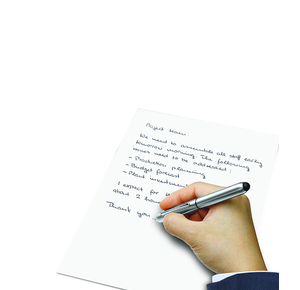 Project team
We need to assemble all staff early
tomorrow morning. The following
issues need to be addressed:
- Production planning
- Budget forecast
- Plant investment
I expect for
about 2
Thank you